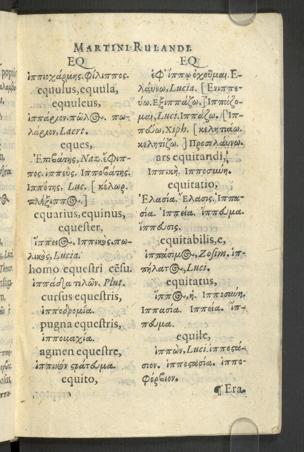 MARTINI RULANDI.
EQ
ἱπποχάρμης. Φίλιππος.
equulus, equula,
equuleus,
ἱππάριον. πῶλος. πω-
λάριον, Laert.
eques,
Ἐπιβάτης, Naz. ἔφιπ-
πος. ἱππεύς. Ἱπποβάτης.
Ἱππότης. Luc. [κέλωρ.
equarius, equinus,
equester,
ἵππειος. ἱππικός. πω-
λικός, Lucia.
homo equestri cēsu.
ἱππάδα τελῶν. Plut.
cursus equestris,
ἱπποδρομία.
pugna equestris,
ἱππομαχία.
agmen equestre,
ἱππικὸν στράτευμα.
equito,
EQ
ἐφ' ἵππῳ ὀχοῦμαι. Ε-
λαύνω, Lucia. [Ενιππε-
ύω. Εξιππάζω.] Ἱππάζο-
μαι, Luc. Ιππάζω. [Ἱπ-
πεύω, Xiph. [κελητιάω.
κελητίζω.] Προσελαύνω.
ars equitandi,
Ἱππική. Ιπποσύνη.
equitatio,
Ἐλασία. Ἔλασις. Ἱππα-
σία. Ἱππεία. ἵππευμα.
ἵππευσις.
equitabilis, e,
ἱππάσιμος, Zosim. ἱπ-
πήλατος, Luci.
equitatus,
ἵππος, ἡ. Ἱπποσύνη.
Ἱππασία. Ἱππεία. ἵπ-
πευμα.
equile,
ἱππών, Luci. ἱπποστά-
σιον. ἱπποστασία. ἱππο-
φόρβιον.
¶ Era.